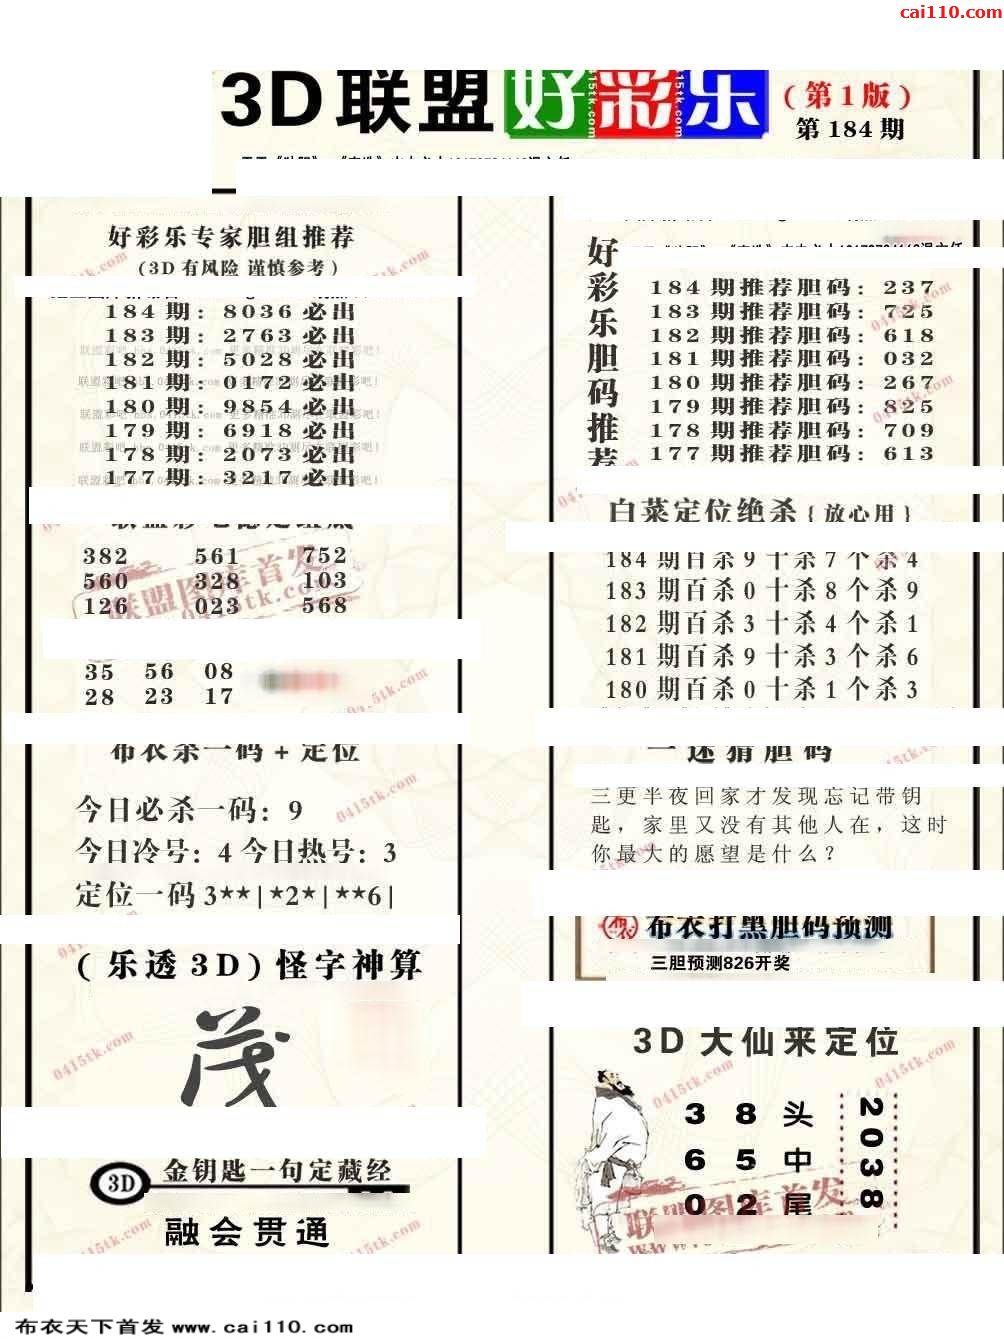 cai110.com
3D联盟好彩乐
(第1版)
第184期
好彩乐专家胆组推荐
(3D有风险 谨慎参考)
184期: 8036必出
183期: 2763必出
182期: 5028必出
181期: 0172必出
180期: 9854必出
179期: 6918必出
178期: 2073必出
177期: 3217必出
382 561 752
560 328 103
126 023 568
联盟图库首发
35 56 08
28 23 17
布衣杀一码+定位
今日必杀一码: 9
今日冷号: 4 今日热号: 3
定位一码3**|*2*|**6|
(乐透3D)怪字神算
茂
3D 金钥匙一句定藏经
融会贯通
好彩乐胆码推荐
184期推荐胆码: 237
183期推荐胆码: 725
182期推荐胆码: 618
181期推荐胆码: 032
180期推荐胆码: 267
179期推荐胆码: 825
178期推荐胆码: 709
177期推荐胆码: 613
白菜定位绝杀{放心用}
184期百杀9十杀7个杀4
183期百杀0十杀8个杀9
182期百杀3十杀4个杀1
181期百杀9十杀3个杀6
180期百杀0十杀1个杀3
一迷猜胆码
三更半夜回家才发现忘记带钥
匙，家里又没有其他人在，这时
你最大的愿望是什么？
布衣打黑胆码预测
三胆预测826开奖
3D大仙来定位
3 8 头
6 5 中
0 2 尾
2038
联盟图库首发
0415tk.com
布衣天下首发 www.cai110.com